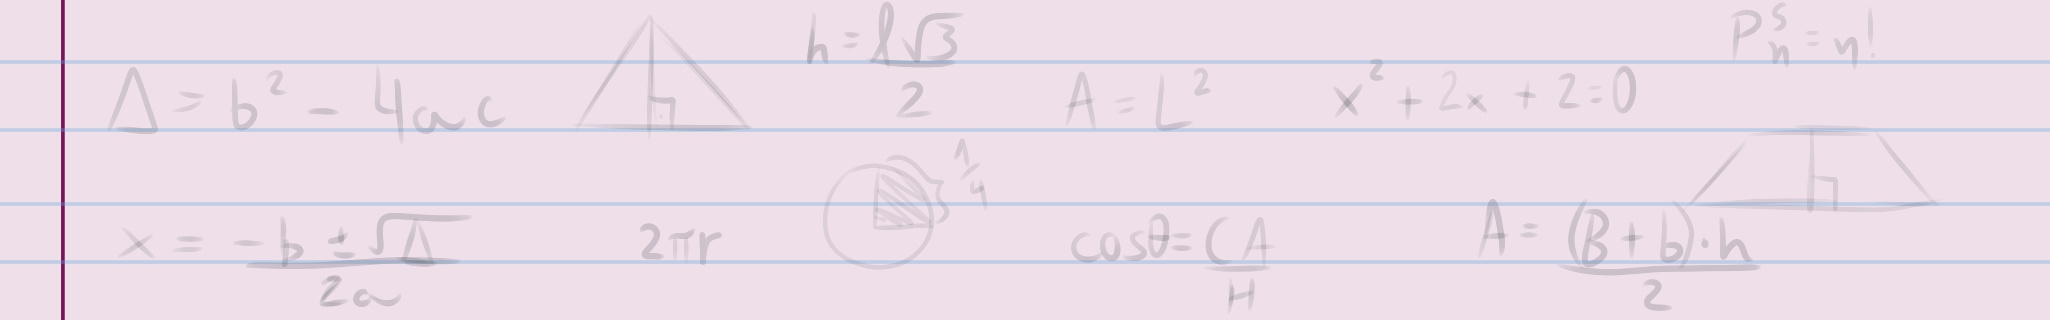 Δ = b² - 4ac
h = l√3/2
A = L²
x² + 2x + 2 = 0
Pₙˢ = n!
x = -b ± √Δ/2a
2πr
1/4
cosθ = CA/H
A = (B + b)·h/2